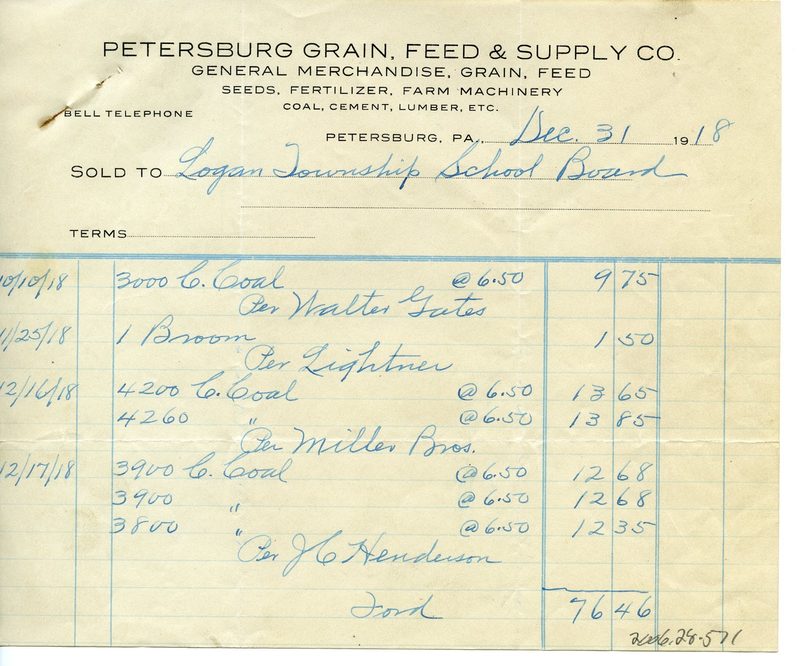 PETERSBURG GRAIN, FEED & SUPPLY CO.
GENERAL MERCHANDISE, GRAIN, FEED
SEEDS, FERTILIZER, FARM MACHINERY
COAL, CEMENT, LUMBER, ETC.
BELL TELEPHONE
PETERSBURG, PA., Dec. 31 1918
SOLD TO Logan Township School Board
TERMS
10/10/18 3000 C. Coal @ 6.50 9 75
Per Walter Gates
11/25/18 1 Broom 1 50
Per Lightner
12/16/18 4200 C. Coal @ 6.50 13 65
4260 " @ 6.50 13 85
Per Miller Bros.
12/17/18 3900 C. Coal @ 6.50 12 68
3900 " @ 6.50 12 68
3800 " @ 6.50 12 35
Per J C Henderson
76 46
2006.28.571